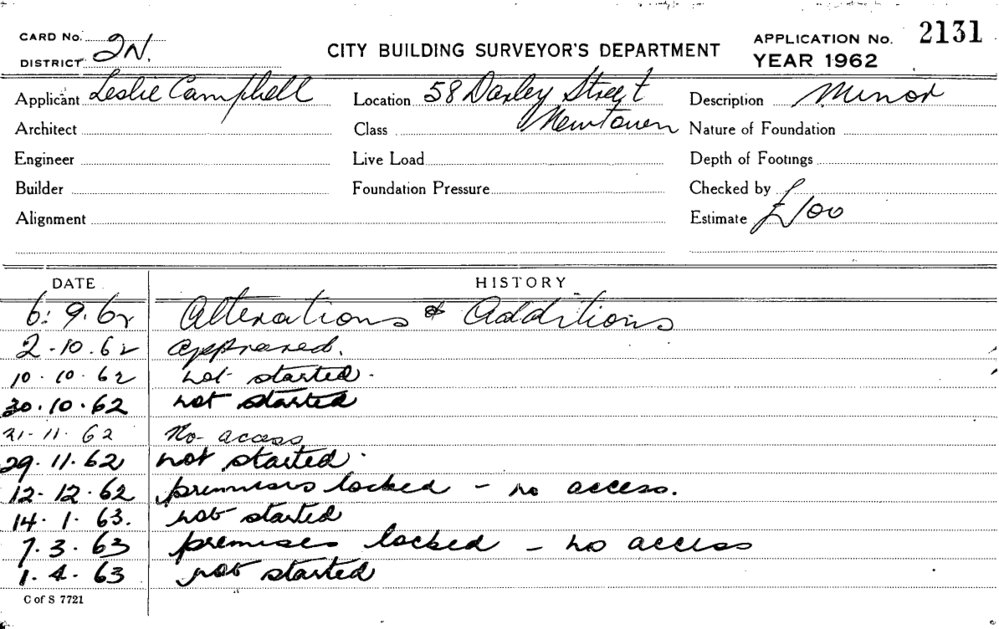 CARD No. 2N. CITY BUILDING SURVEYOR'S DEPARTMENT APPLICATION No. 2131
DISTRICT YEAR 1962
Applicant Leslie Campbell Location 58 Darley Street Description Minor
Architect Class Newtown Nature of Foundation
Engineer Live Load Depth of Footings
Builder Foundation Pressure Checked by
Alignment Estimate £100
DATE HISTORY
6. 9. 62 Alterations & Additions
2.10.62 approved.
10.10.62 not started.
30.10.62 not started
21.11.62 No access
29.11.62 not started.
12.12.62 premises locked - no access.
14.1.63. not started
7.3.63 premises locked - no access
1.4.63 not started
C of S 7721